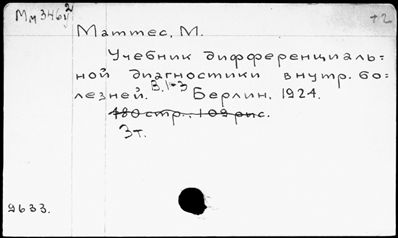 +2
Маттес, М.
Учебник дифференциаль=
ной диагностики внутр. бо=
лезней. В. 1-3 Берлин, 1924.
480 стр., 109 рис.
3т.
9633.